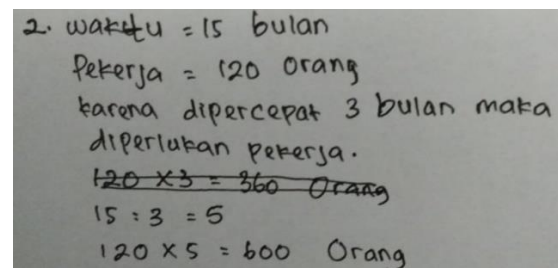 2. waktu = 15 bulan
Pekerja = 120 Orang
karena dipercepat 3 bulan maka
diperlukan pekerja.
120 x 3 = 360 Orang
15 : 3 = 5
120 x 5 = 600 Orang